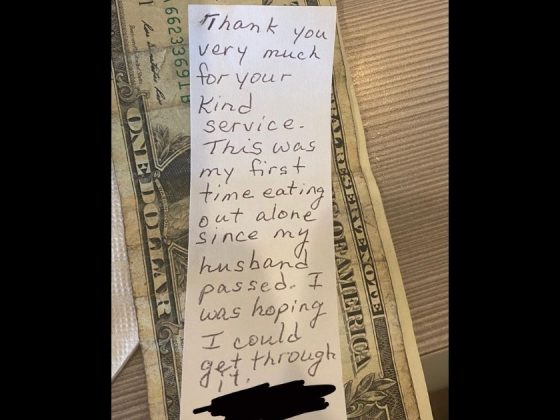 Thank you
very much
for your
kind
service.
This was
my first
time eating
out alone
since my
husband
passed. I
was hoping
I could
get through
it.
ONE DOLLAR
OF AMERICA